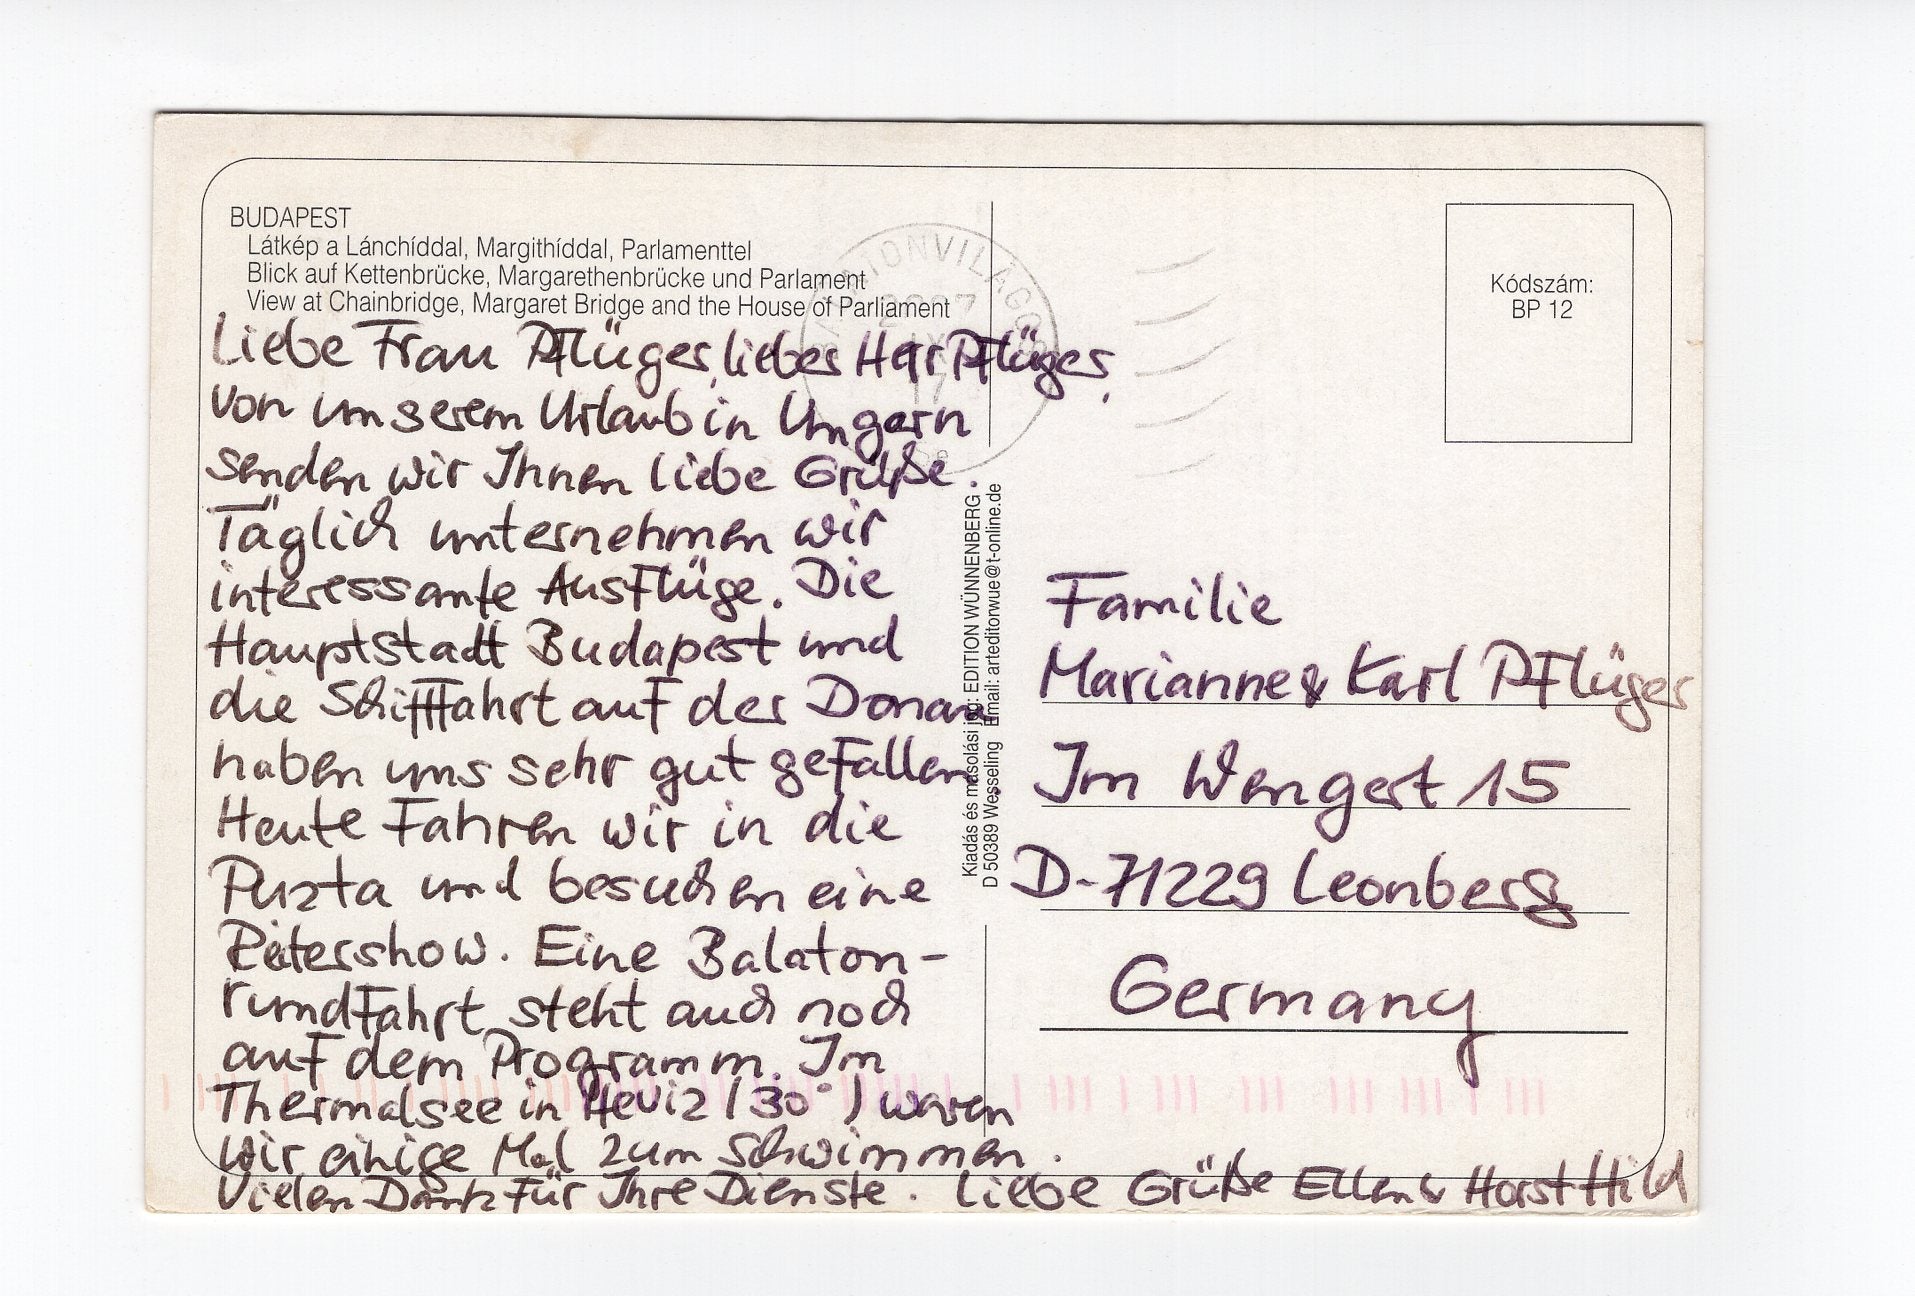 BUDAPEST
Látkép a Lánchíddal, Margithíddal, Parlamenttel
Blick auf Kettenbrücke, Margarethenbrücke und Parlament
View at Chainbridge, Margaret Bridge and the House of Parliament
Liebe Frau Pflüger, lieber Herr Pflüger,
von unserem Urlaub in Ungarn
senden wir Ihnen liebe Grüße.
Täglich unternehmen wir
interessante Ausflüge. Die
Hauptstadt Budapest und
die Schifffahrt auf der Donau
haben uns sehr gut gefallen
Heute fahren wir in die
Puszta und besuchen eine
Reitershow. Eine Balaton-
rundfahrt steht auch noch
auf dem Programm. Im
Thermalsee in Heviz (30°) waren
wir einige Mal zum Schwimmen.
Vielen Dank für Ihre Dienste. Liebe Grüße Ellen & Horst Hild
BALATONVILÁGOS
2007
IX
17
Kiadás és másolási jog: EDITION WÜNNENBERG
D 50389 Wesseling Email: arteditorwue@t-online.de
Kódszám:
BP 12
Familie
Marianne & Karl Pflüger
Im Wengert 15
D-71229 Leonberg
Germany